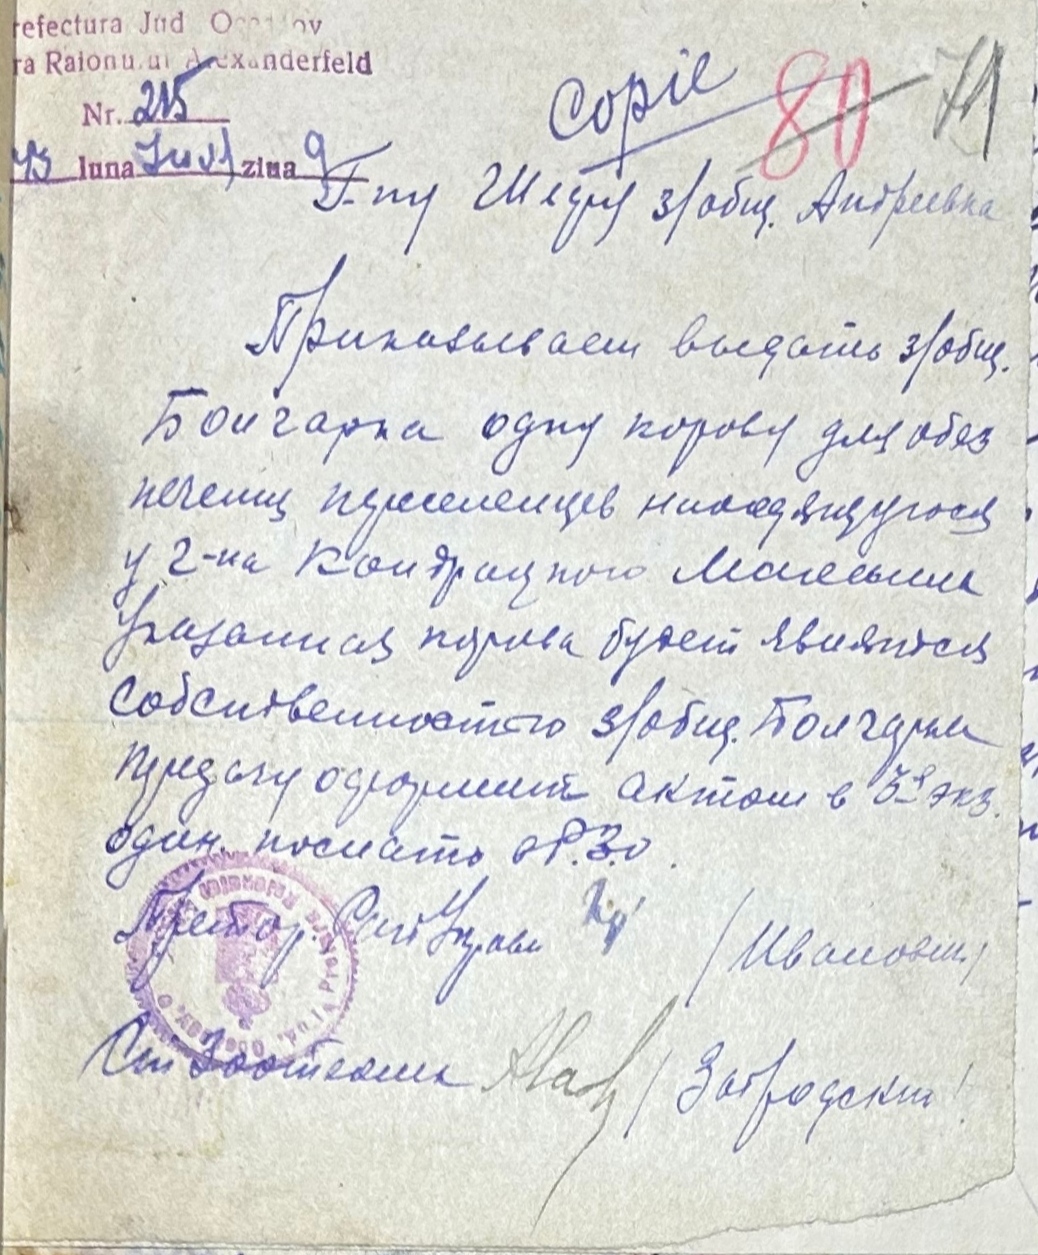 refectura Jud Oceacov
ra Raionului Alexanderfeld
Nr. 215
43 luna Iuli ziua 9
Copie
80 71
Г-ну Шефу з/общ. Андреевка
Приказываем выдать з/общ.
Болгарка одну корову для обез
печения переселенцев находящуюся
у г-на Кондрацкого Максыма
Указанная корова будет являтся
собственностю з/общ. Болгарка
передачу оформит актом в 3х экз.
один. послать в Р.З.о.
Претор. Сит Управ
/Иванович/
Ст Зоотехник
/Завродский/